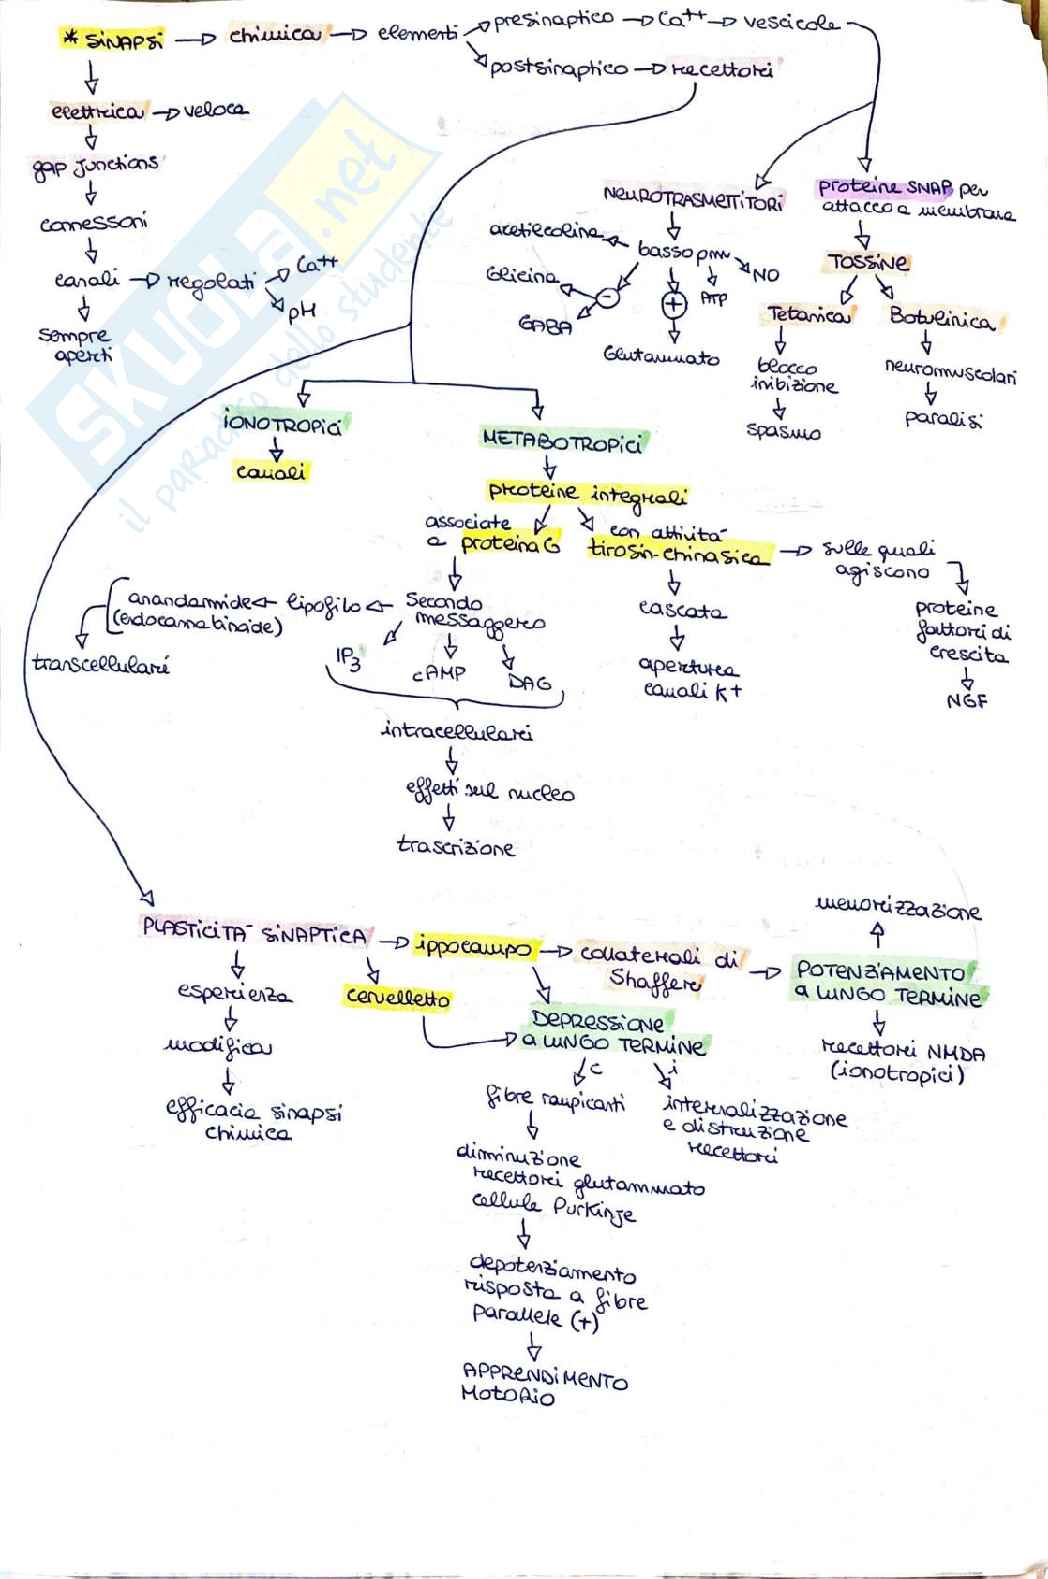 * SINAPSI → chimica → elementi → presinaptico → Ca++ → vescicole
postsinaptico → recettori
elettrica → veloce
gap junctions
connessoni
canali → regolati → Ca++
pH
sempre
aperti
NEUROTRASMETTITORI
acetilcolina
basso pm
NO
ATP
Glicina
-
GABA
+
Glutammato
proteine SNAP per
attacco a membrana
TOSSINE
Tetanica
Botulinica
blocco
inibizione
spasmo
neuromuscolari
paralisi
SKUOLA.net
il paradiso dello studente
IONOTROPICI
canali
METABOTROPICI
proteine integrali
associate
a proteina G
con attività
tirosin-chinasica → sulle quali
agiscono
proteine
fattori di
crescita
NGF
cascata
apertura
canali K+
Secondo
messaggero
lipofilo
anandamide
(endocannabinoide)
transcellulari
IP3
cAMP
DAG
intracellulari
effetti sul nucleo
trascrizione
PLASTICITÀ SINAPTICA → ippocampo → collaterali di
Shaffer
→ POTENZIAMENTO
A LUNGO TERMINE
memorizzazione
recettori NMDA
(ionotropici)
esperienza
modifica
efficacia sinapsi
chimica
cervelletto
DEPRESSIONE
A LUNGO TERMINE
c
i
fibre rampicanti
internalizzazione
e distruzione
recettori
diminuzione
recettori glutammato
cellule Purkinje
depotenziamento
risposta a fibre
parallele (+)
APPRENDIMENTO
MOTORIO